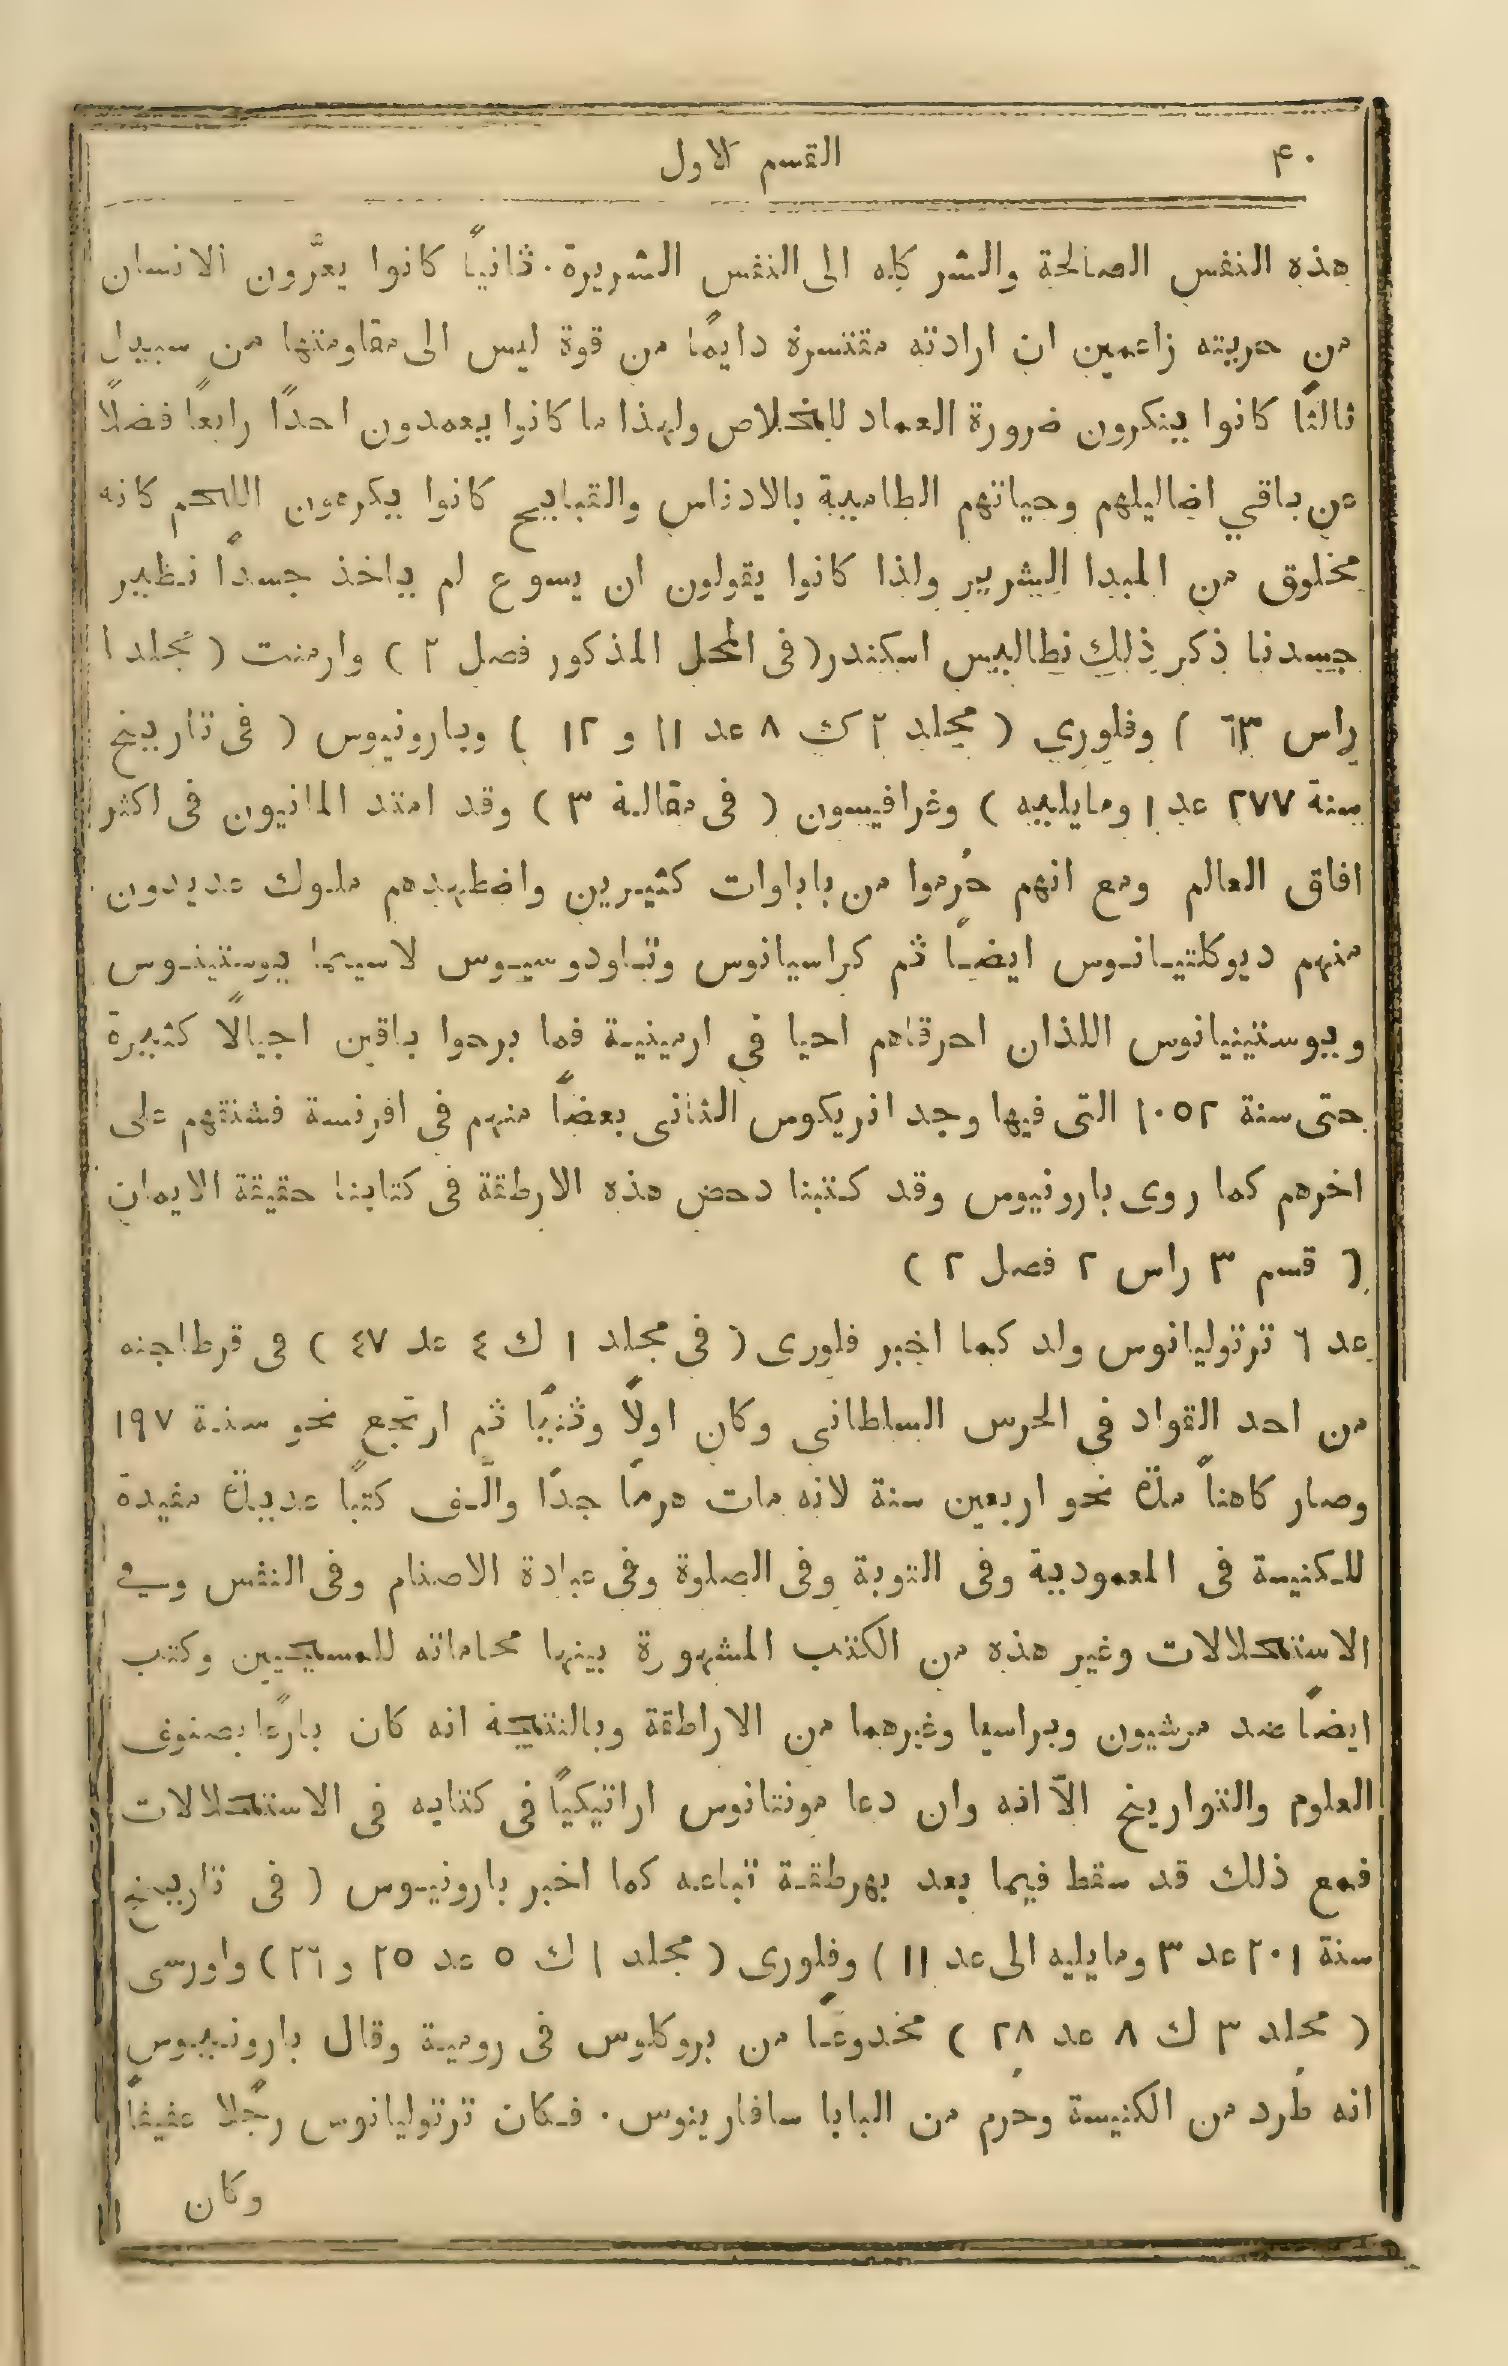 ٤٠ القسم الاول
هذه النفس الصالحة والشر كله الى النفس الشريرة. ثانياً كانوا يعرّون الانسان
من حريته زاعمين ان ارادته مقتسرة دايمًا من قوة ليس الى مقاومتها من سبيل
ثالثًا كانوا ينكرون ضرورة العماد للخلاص ولهذا ما كانوا يعمدون احدًا رابعًا فضلاً
عن باقي اضاليلهم وحياتهم الطامية بالادناس والقبايح كانوا يكرهون اللحم كانه
مخلوق من المبدا الشرير ولذا كانوا يقولون ان يسوع لم ياخذ جسدًا نظير
جسدنا ذكر ذلك نطاليس اسكندر (فى المحل المذكور فصل ٢ ) وارمنت ( مجلد ١
راس ٦٣ ) وفلوري ( مجلد ٢ ك ٨ عد ١١ و ١٢ ) وبارونيوس ( فى تاريخ
سنة ٢٧٧ عد ١ ومايليه ) وغرافيسون ( فى مقالة ٣ ) وقد امتد المانيون فى اكثر
افاق العالم ومع انهم حُرموا من باباوات كثيرين واضطهدهم ملوك عديدون
منهم ديوكلتيانوس ايضًا ثم كراسيانوس وتاودوسيوس لاسيما يوستينوس
ويوستينيانوس اللذان احرقاهم احيا في ارمينية فما برحوا باقين اجيالًا كثيرة
حتى سنة ١٠٥٢ التى فيها وجد انريكوس الثانى بعضاً منهم فى افرنسة فشنقهم على
اخرهم كما روى بارونيوس وقد كتبنا دحض هذه الارطقة فى كتابنا حقيقة الايمان
( قسم ٣ راس ٢ فصل ٢ )
عد ٦ ترتوليانوس ولد كما اخبر فلورى ( فى مجلد ١ ك ٤ عد ٤٧ ) فى قرطاجنه
من احد القواد في الحرس السلطاني وكان اولاً وثنيًا ثم ارتجع نحو سنة ١٩٧
وصار كاهناً مدة نحو اربعين سنة لانه مات هرمًا جدًا والّف كتبًا عديدة مفيدة
للكنيسة فى المعمودية وفى التوبة وفى الصلوة وفى عبادة الاصنام وفى النفس وفي
الاستحلالات وغير هذه من الكتب المشهورة بينها محاماته للمسيحيين وكتب
ايضًا ضد مرشيون وبراسيا وغيرهما من الاراطقة وبالنتيجة انه كان بارعًا بصنوف
العلوم والتواريخ الّا انه وان دعا مونتانوس اراتيكيًا فى كتابه فى الاستحلالات
فمع ذلك قد سقط فيما بعد بهرطقة تباعه كما اخبر بارونيوس ( فى تاريخ
سنة ٢٠١ عد ٣ ومايليه الى عد ١١ ) وفلورى ( مجلد ١ ك ٥ عد ٢٥ و ٢٦ ) واورسى
( مجلد ٣ ك ٨ عد ٢٨ ) مخدوعًا من بروكلوس فى رومية وقال بارونيوس
انه طُرد من الكنيسة وحُرم من البابا سافارينوس. فكان ترتوليانوس رجُلا عفيفاً
وكان